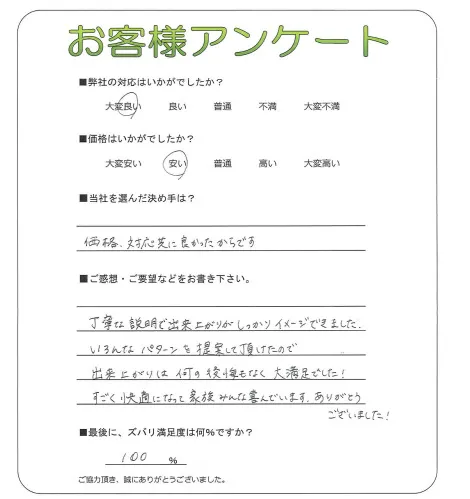 お客様アンケート
■弊社の対応はいかがでしたか？
大変良い 良い 普通 不満 大変不満
■価格はいかがでしたか？
大変安い 安い 普通 高い 大変高い
■当社を選んだ決め手は？
価格、対応共に良かったからです
■ご感想・ご要望などをお書き下さい。
丁寧な説明で出来上がりがしっかりイメージできました。
いろんなパターンを提案して頂けたので
出来上がりは何の後悔もなく大満足でした！
すごく快適になって家族みんな喜んでいます。ありがとう
ございました！
■最後に、ズバリ満足度は何％ですか？
100 %
ご協力頂き、誠にありがとうございました。